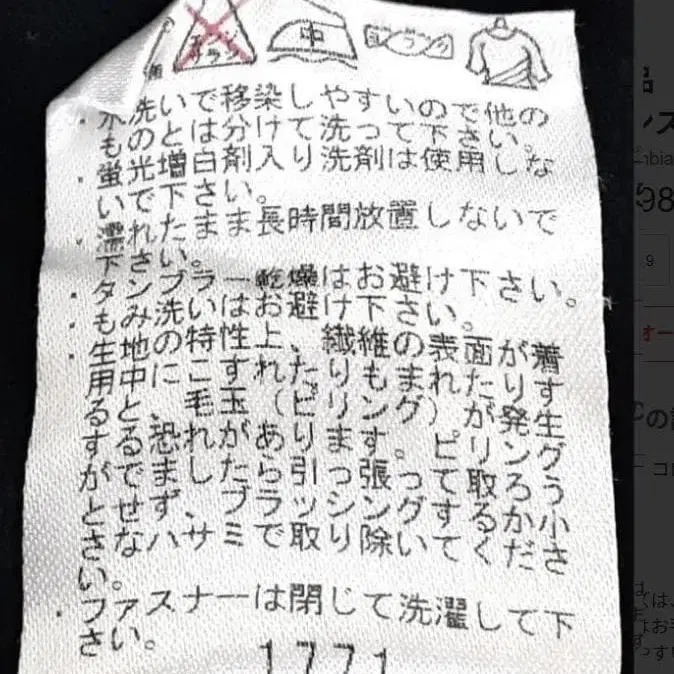 中
エンソ
サラシ
ヨワク
・水洗いで移染しやすいので他の
ものとは分けて洗って下さい。
・蛍光増白剤入り洗剤は使用しな
いで下さい。
・濡れたまま長時間放置しないで
下さい。
・タンブラー乾燥はお避け下さい。
・もみ洗いはお避け下さい。
・生地の特性上、繊維の表面が着
用中にこすれたりもまれたりす
ると、毛玉（ピリング）が発生
する恐れがあります。ピリング
がでましたら引っ張って取ろう
とせず、ブラッシングするか小
さなハサミで取り除いてくださ
い。
・ファスナーは閉じて洗濯して下
さい。
1771
98
9
オー
の
コ